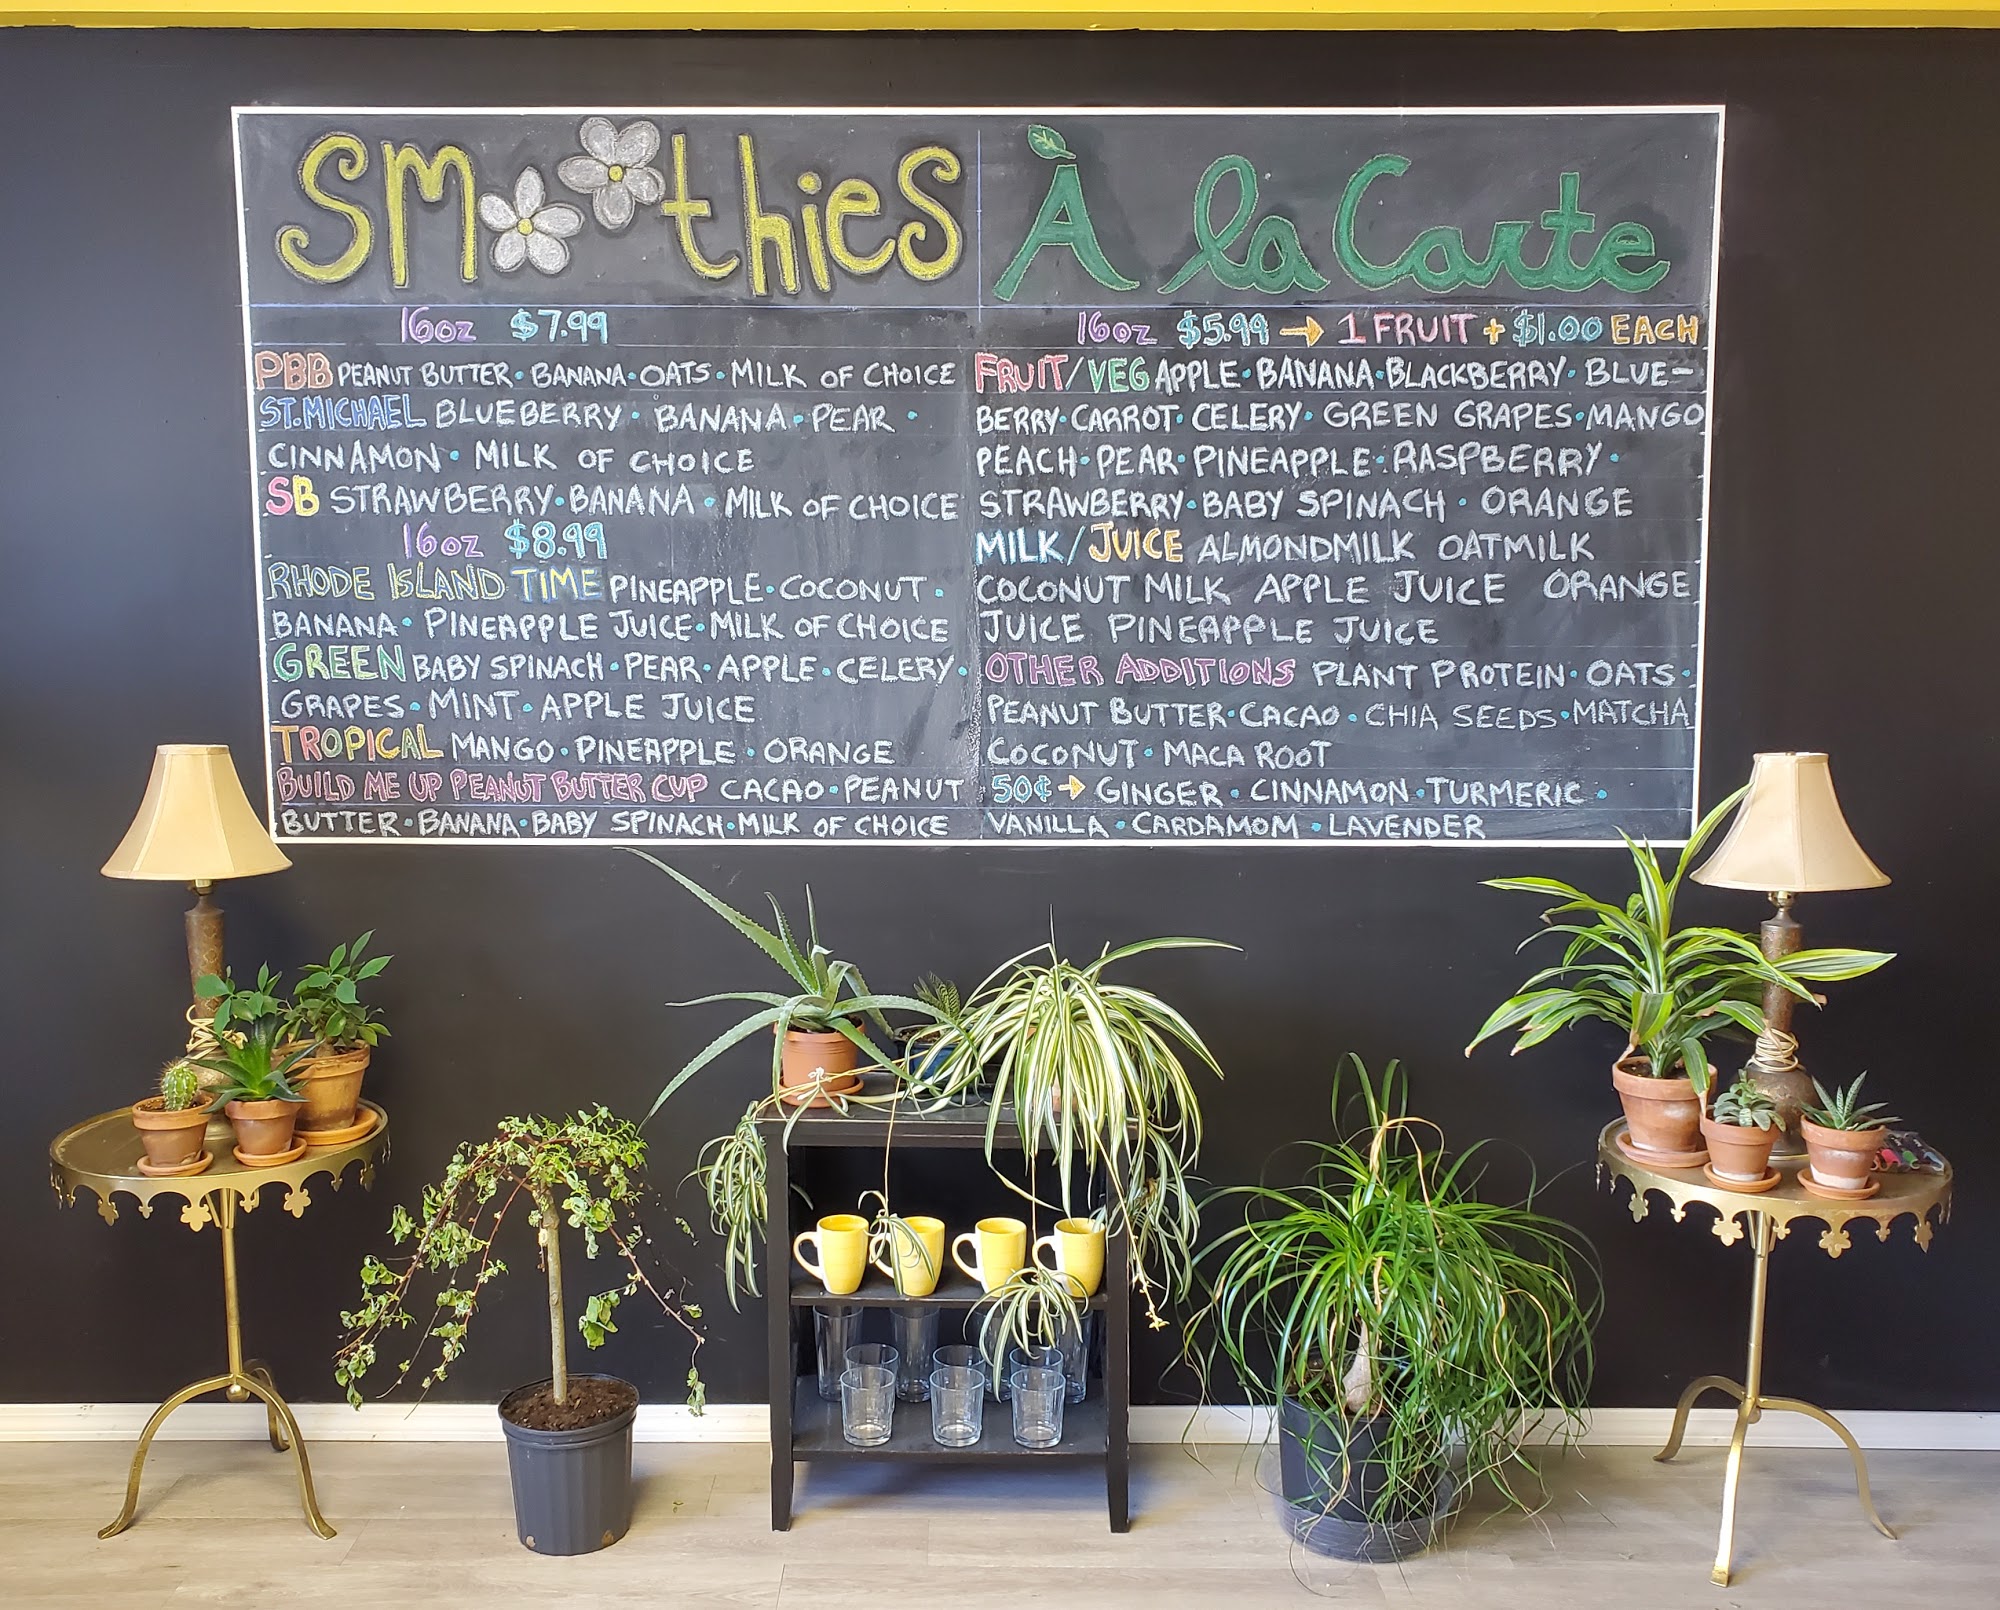 Smoothies
16oz $7.99
PBB PEANUT BUTTER · BANANA · OATS · MILK OF CHOICE
ST.MICHAEL BLUEBERRY · BANANA · PEAR ·
CINNAMON · MILK OF CHOICE
SB STRAWBERRY · BANANA · MILK OF CHOICE
16oz $8.99
RHODE ISLAND TIME PINEAPPLE · COCONUT ·
BANANA · PINEAPPLE JUICE · MILK OF CHOICE
GREEN BABY SPINACH · PEAR · APPLE · CELERY ·
GRAPES · MINT · APPLE JUICE
TROPICAL MANGO · PINEAPPLE · ORANGE
BUILD ME UP PEANUT BUTTER CUP CACAO · PEANUT
BUTTER · BANANA · BABY SPINACH · MILK OF CHOICE
À la Carte
16oz $5.99 → 1 FRUIT + $1.00 EACH
FRUIT/VEG APPLE · BANANA · BLACKBERRY · BLUE-
BERRY · CARROT · CELERY · GREEN GRAPES · MANGO
PEACH · PEAR · PINEAPPLE · RASPBERRY ·
STRAWBERRY · BABY SPINACH · ORANGE
MILK/JUICE ALMONDMILK OATMILK
COCONUT MILK APPLE JUICE ORANGE
JUICE PINEAPPLE JUICE
OTHER ADDITIONS PLANT PROTEIN · OATS ·
PEANUT BUTTER · CACAO · CHIA SEEDS · MATCHA
COCONUT · MACA ROOT
50¢ → GINGER · CINNAMON · TURMERIC ·
VANILLA · CARDAMOM · LAVENDER